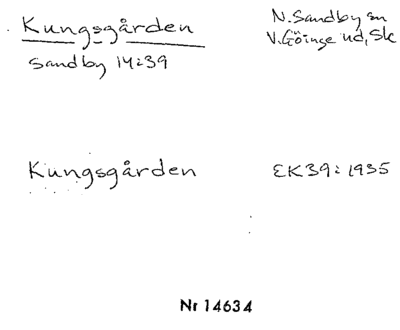 Kungsgården
N. Sandby sn
Sandby 14:39
V. Göinge hd, Sk
Kungsgården
EK39: 1935
Nr 14634